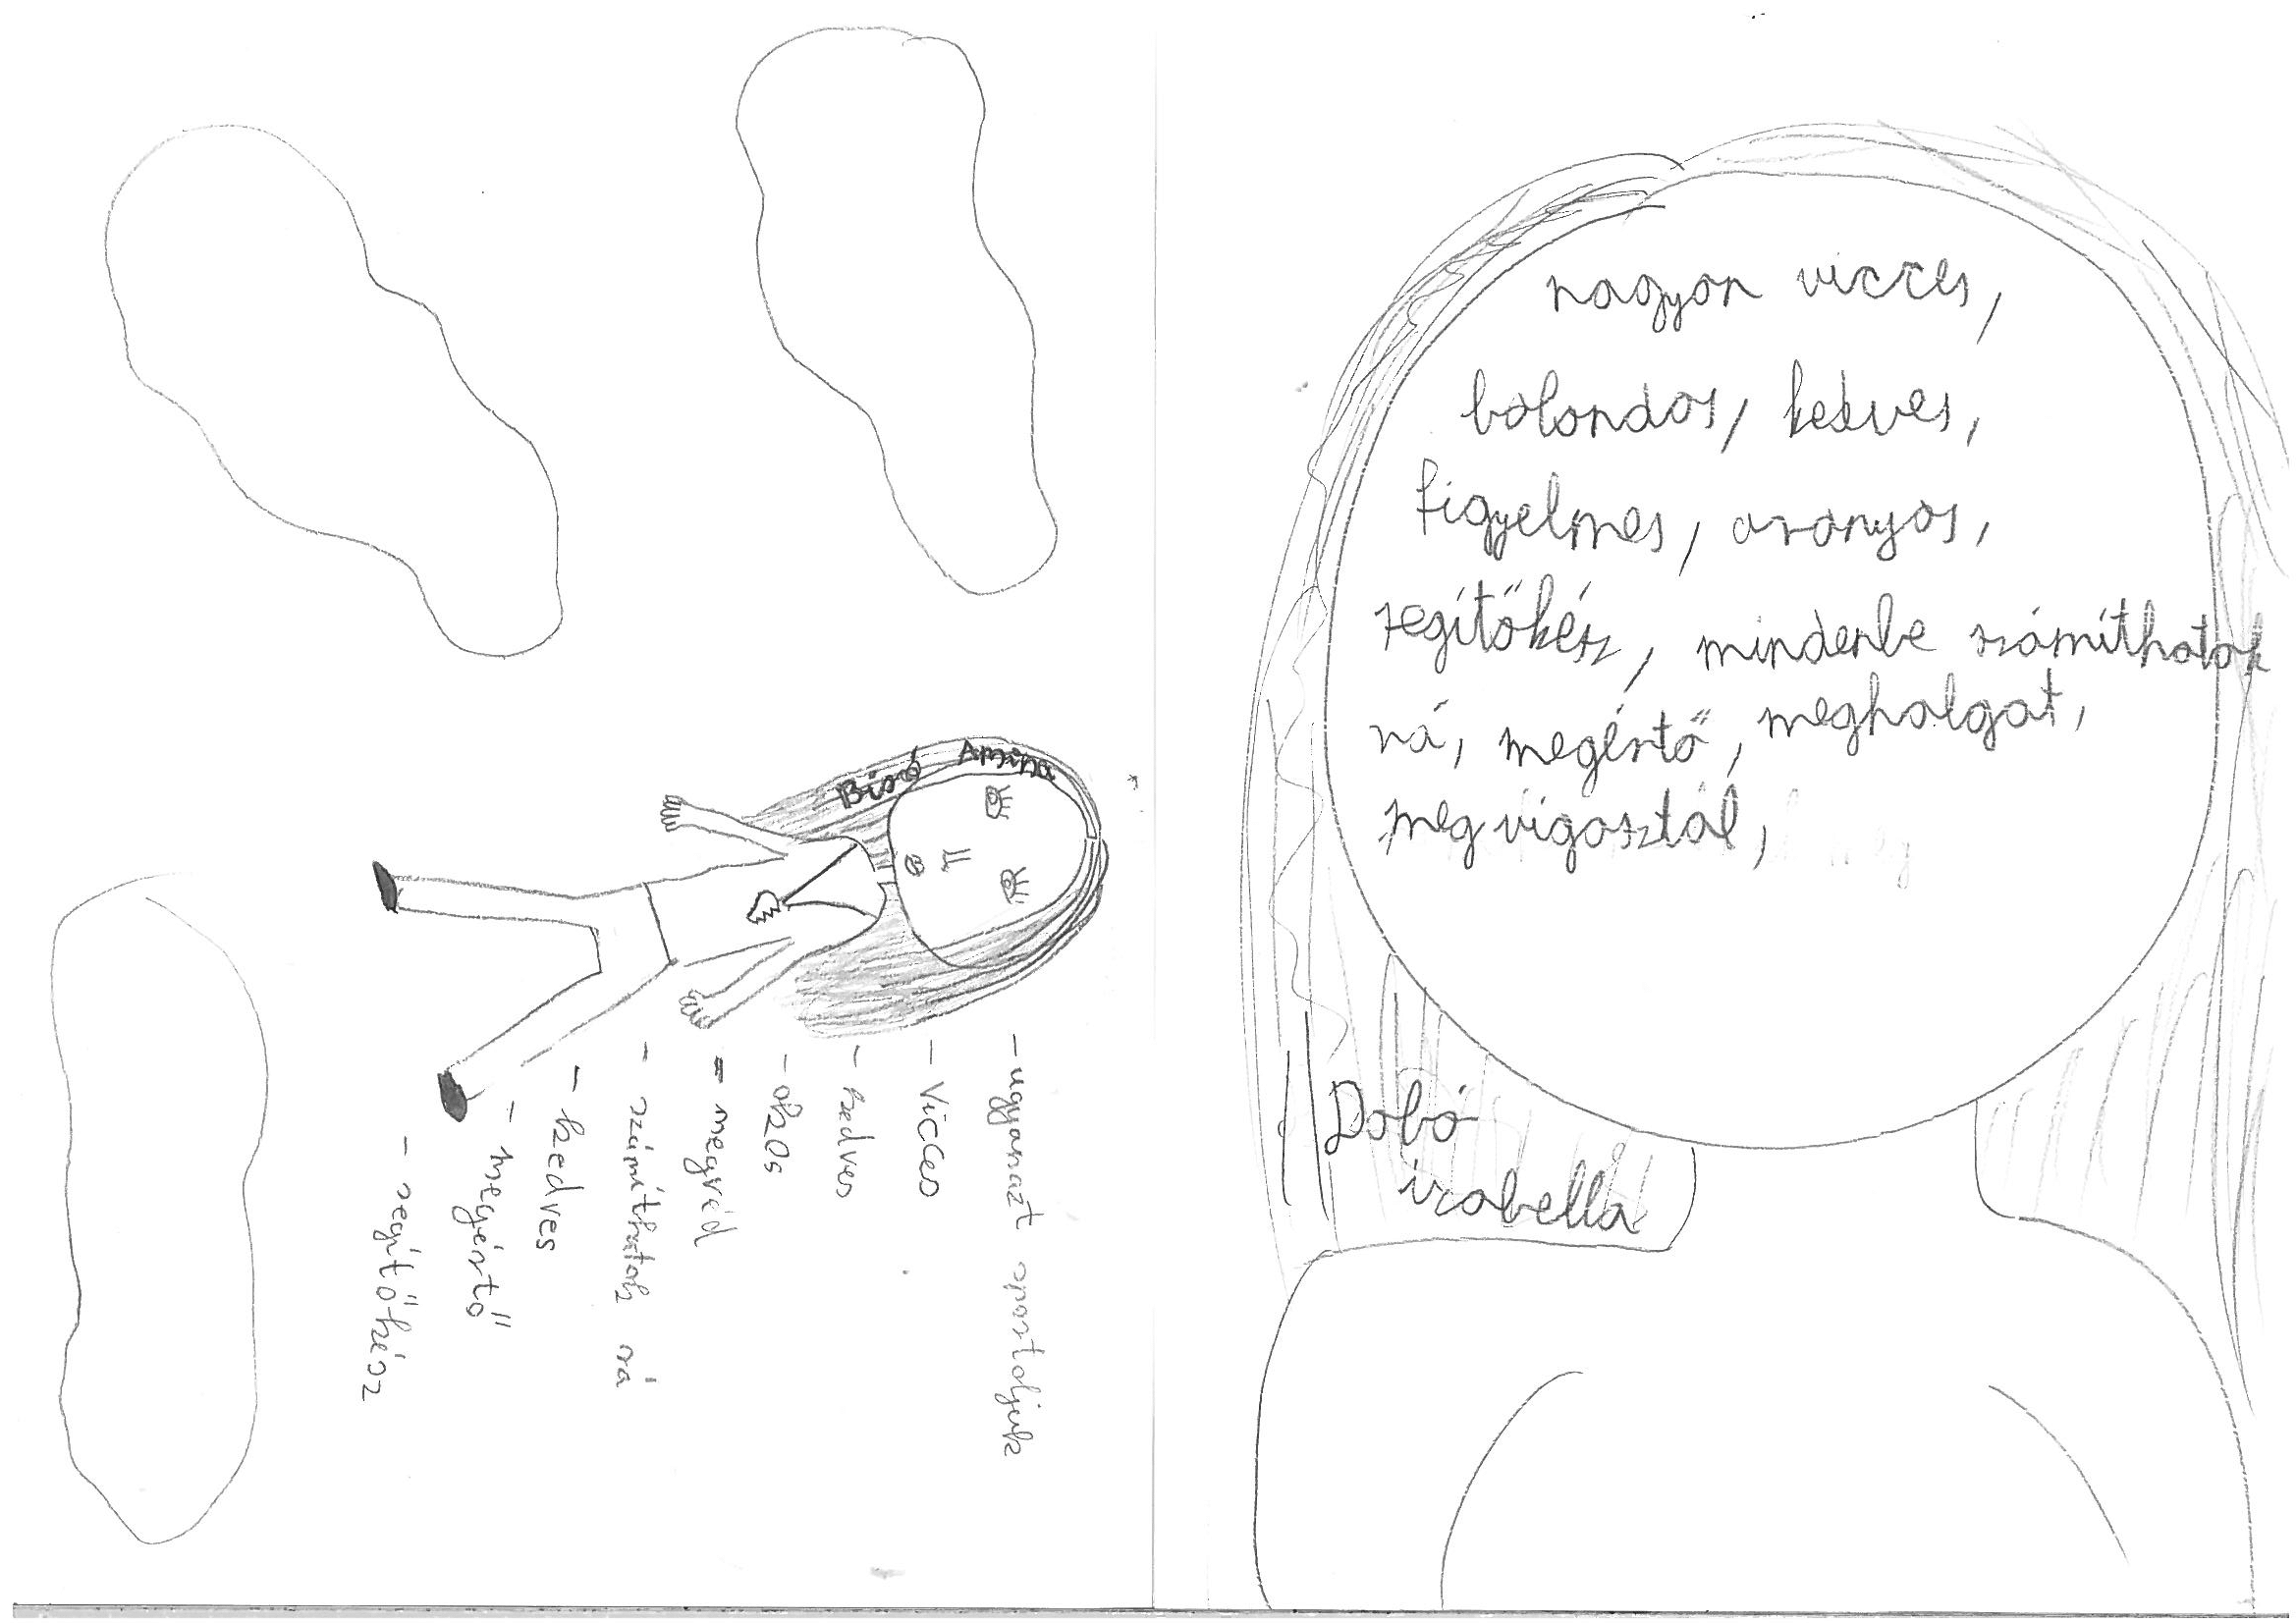 Bíró Amina
- ugyanazt sportoljuk
- Vicces
- kedves
- okos
- megvéd
- számíthatok rá
- kedves
- megértő
- segítőkész
nagyon vicces,
bolondos, kedves,
figyelmes, aranyos,
segítőkész, mindenbe számíthatok
rá, megértő, meghalgat,
megvigasztal,
Dobó
izabella